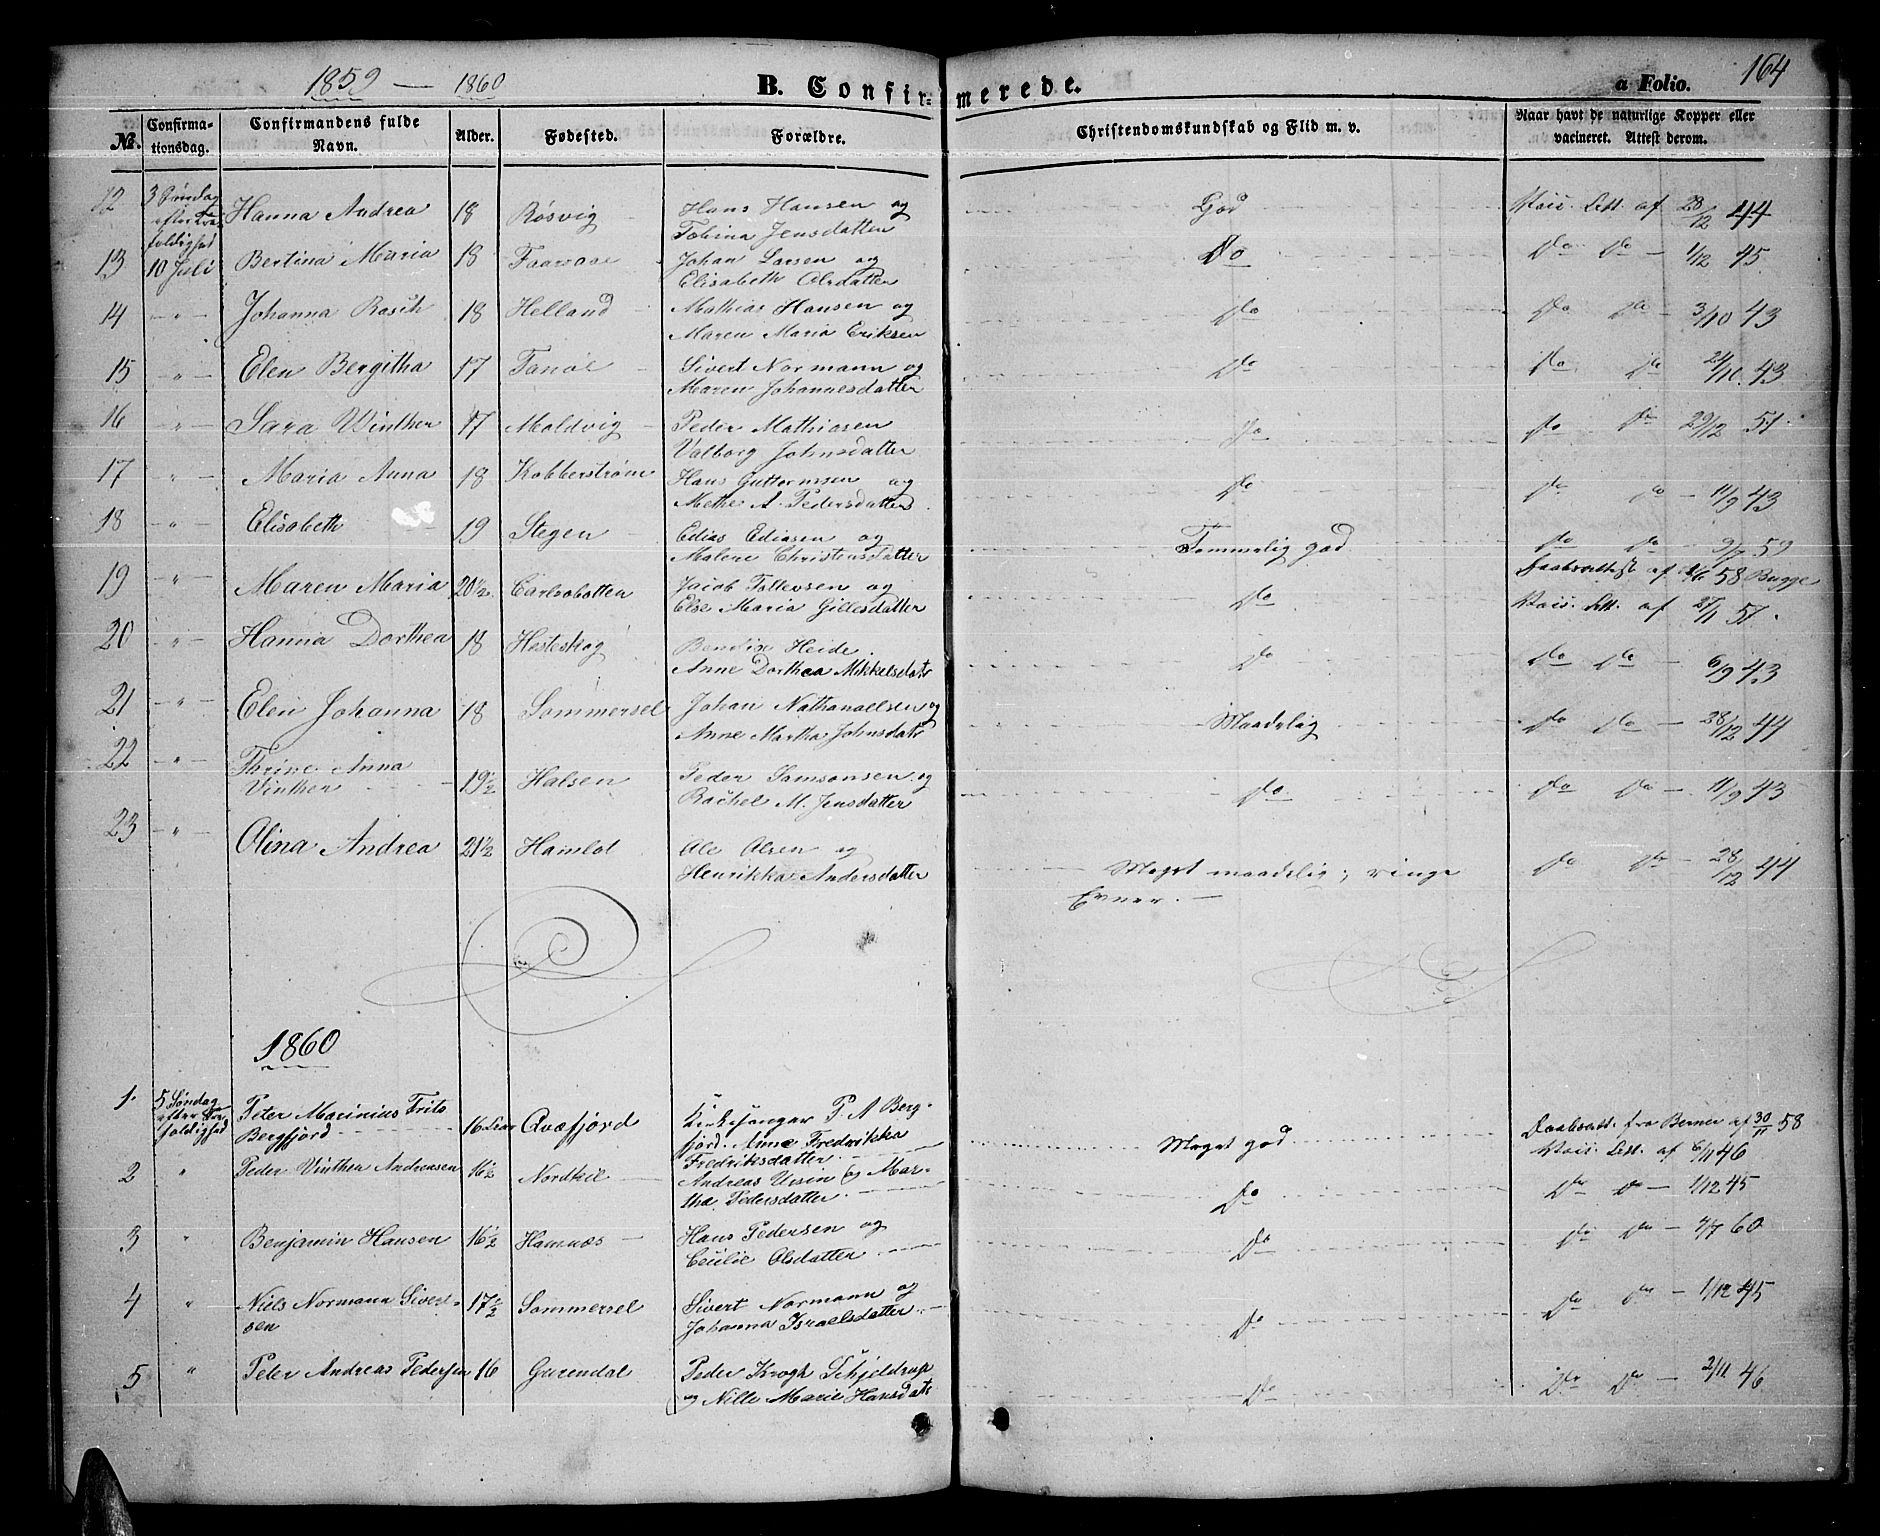 1859 — 1860 B. Confirmerede. a Folio. 164
№. Confirmationsdag. Confirmandens fulde Navn. Alder. Fødested. Forældre. Christendomskundskab og Flid m. v. Naar havt de naturlige Kopper eller vacineret. Attest derom.
12 3 Søndag efter Trefoldighed Hanna Andrea 18 Røsvig Hans Hansen og God Vacc. Att. af 28/12 44
Tobina Jensdatter
13 10 Juli Bertina Maria 18 Johan Larsen og Do Do Do 1/12 45.
Elisabeth Olsdatter
14 – " – Johanna Rasch 18 Helland Mathias Hansen og Do Do Do 3/10 43
Maren Maria Eriksen
15 – " – Elen Bergitha 17 Tanøe Sivert Normann og Do Do Do 24/10. 43
Maren Johannesdatter
16 – " – Sara Winther 17 Moldvig Peder Mathiasen Do Do Do 29/12 51.
Valborg Johnsdatter
17 – " – Maria Anna 18 Kobberstrøm Hans Guttormsen og Do Do Do – 11/9 43
Methe A. Pedersdatter
18 – " – Elisabeth 19 Stegen Edias Ediasen og Temmelig god Do Do – 9/7 59
Malene Christensdatter
19 – " – Maren Maria 20½ Carlsobotten Jacob Tollevsen og Do Daabsattest af 58 Bugge
Else Maria Gillesdatter Vacc. Att. af 27/11 51.
20 – " – Hanna Dorthea 18 Hesteskog Bendix Heide. Do Do Do – 6/9 43
Anne Dorthea Mikkelsdatr
21 – " – Elen Johanna 18 Sommersel Johan Nathanaelsen og Maadelig Do Do – 28/12 44
Anne Martha Johnsdatr
22 – " – Thrine Anna Vinther 19½ Halsen Peder Samsonsen og Do Do Do – 11/9 43
Rachel M. Jensdatter
23 – " – Olina Andrea 21½ Hamlot Ole Olsen og Meget maadelig; ringe Do Do – 28/12 44
Henrikka Andersdatter Evner. –
1860
1. 5 Søndag efter Trefoldighed Peter Marinius Frits Bergfjord 16 Qvæfjord Kirkesanger P. A Bergfjord. Anne Fredrikka Fredriksdatter Meget god Daabsatt. fra Berner af 30/11 58
Vacc. Att. af 6/11 46
2 " Peder Vinther Andreasen 16½ Nordkil Andreas Ursin og Martha Pedersdatter Do Do Do – 1/12 45
3 " Benjamin Hansen 16½ Hamnæs Hans Pedersen og Do Do Do – 4/7 60
Cecilie Olsdatter
4 " Niels Normann Sivertsen 17½ Sommersel Sivert Normann og Do Do Do – 1/12 45
Johanna Israelsdatter
5 " Peter Andreas Pedersen 16 Gurendal Peder Krogh Schjeldrup Do Do Do – 2/11 46
og Nille Marie Hansdatr